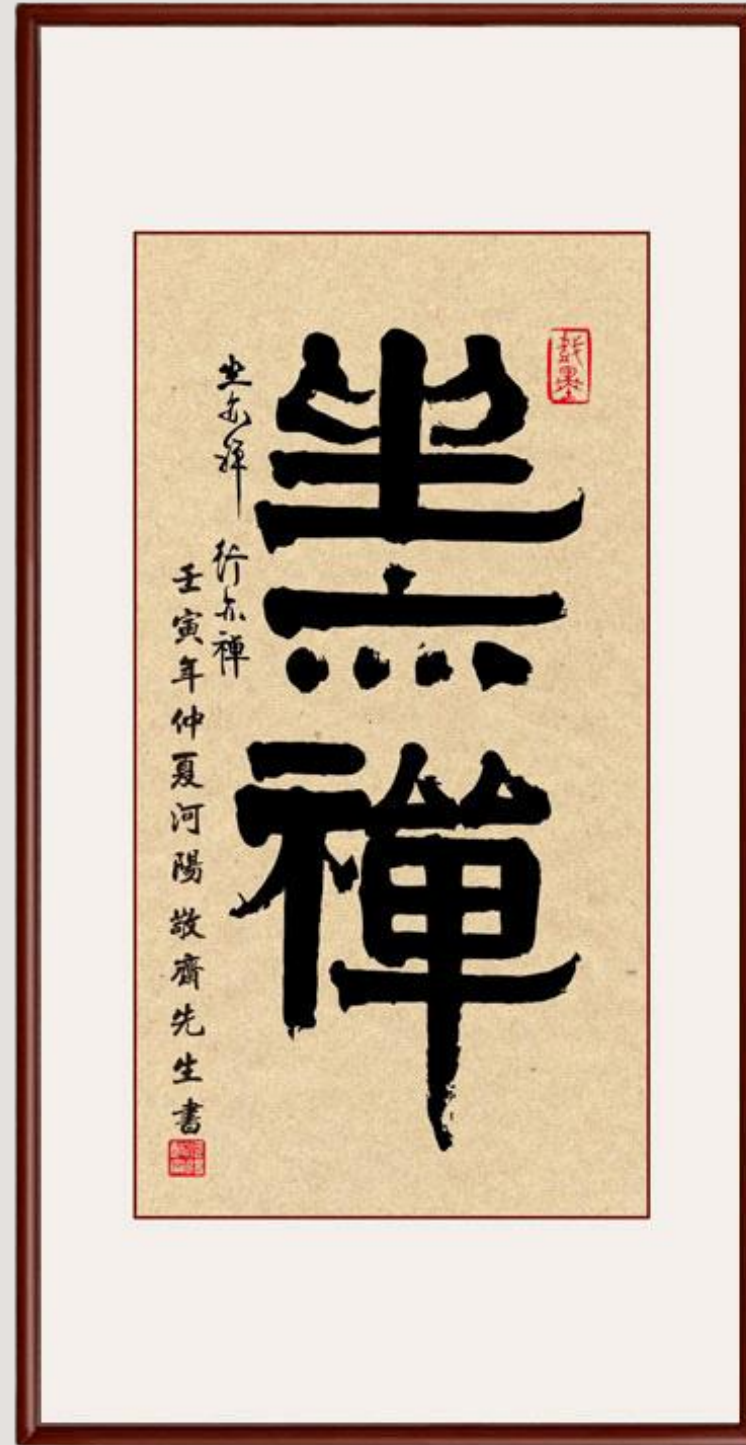 坐亦禪
坐亦禅 行亦禅
壬寅年仲夏河陽敬齋先生書